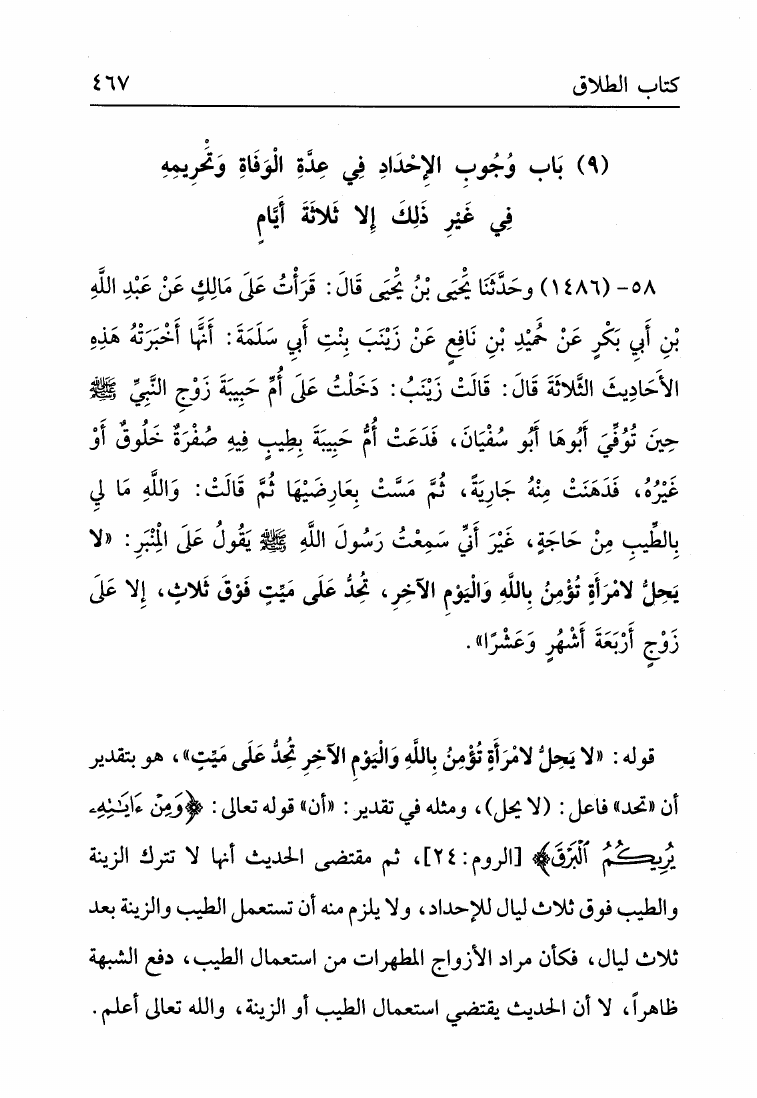 كتاب الطلاق ٤٦٧
(٩) بَاب وُجُوبِ الإِحْدَادِ فِي عِدَّةِ الْوَفَاةِ وَتَحْرِيمِهِ
فِي غَيْرِ ذَلِكَ إِلا ثَلاثَةَ أَيَّامٍ
٥٨- (١٤٨٦) وحَدَّثَنَا يَحْيَى بْنُ يَحْيَى قَالَ: قَرَأْتُ عَلَى مَالِكٍ عَنْ عَبْدِ اللَّهِ
بْنِ أَبِي بَكْرٍ عَنْ حُمَيْدِ بْنِ نَافِعٍ عَنْ زَيْنَبَ بِنْتِ أَبِي سَلَمَةَ: أَنَّهَا أَخْبَرَتْهُ هَذِهِ
الأَحَادِيثَ الثَّلاثَةَ قَالَ: قَالَتْ زَيْنَبُ: دَخَلْتُ عَلَى أُمِّ حَبِيبَةَ زَوْجِ النَّبِيِّ ﷺ
حِينَ تُوُفِّيَ أَبُوهَا أَبُو سُفْيَانَ، فَدَعَتْ أُمُّ حَبِيبَةَ بِطِيبٍ فِيهِ صُفْرَةٌ خَلُوقٌ أَوْ
غَيْرُهُ، فَدَهَنَتْ مِنْهُ جَارِيَةً، ثُمَّ مَسَّتْ بِعَارِضَيْهَا ثُمَّ قَالَتْ: وَاللَّهِ مَا لِي
بِالطِّيبِ مِنْ حَاجَةٍ، غَيْرَ أَنِّي سَمِعْتُ رَسُولَ اللَّهِ ﷺ يَقُولُ عَلَى الْمِنْبَرِ: «لا
يَحِلُّ لامْرَأَةٍ تُؤْمِنُ بِاللَّهِ وَالْيَوْمِ الآخِرِ، تُحِدُّ عَلَى مَيِّتٍ فَوْقَ ثَلاثٍ، إِلا عَلَى
زَوْجٍ أَرْبَعَةَ أَشْهُرٍ وَعَشْرًا».
قوله: «لا يَحِلُّ لامْرَأَةٍ تُؤْمِنُ بِاللَّهِ وَالْيَوْمِ الآخِرِ تُحِدُّ عَلَى مَيِّتٍ»، هو بتقدير
أن «تحد» فاعل: (لا يحل)، ومثله في تقدير: «أن» قوله تعالى: ﴿وَمِنْ ءَايَـٰتِهِۦ
يُرِيكُمُ ٱلْبَرْقَ﴾ [الروم: ٢٤]، ثم مقتضى الحديث أنها لا تترك الزينة
والطيب فوق ثلاث ليال للإحداد، ولا يلزم منه أن تستعمل الطيب والزينة بعد
ثلاث ليال، فكأن مراد الأزواج المطهرات من استعمال الطيب، دفع الشبهة
ظاهراً، لا أن الحديث يقتضي استعمال الطيب أو الزينة، والله تعالى أعلم.